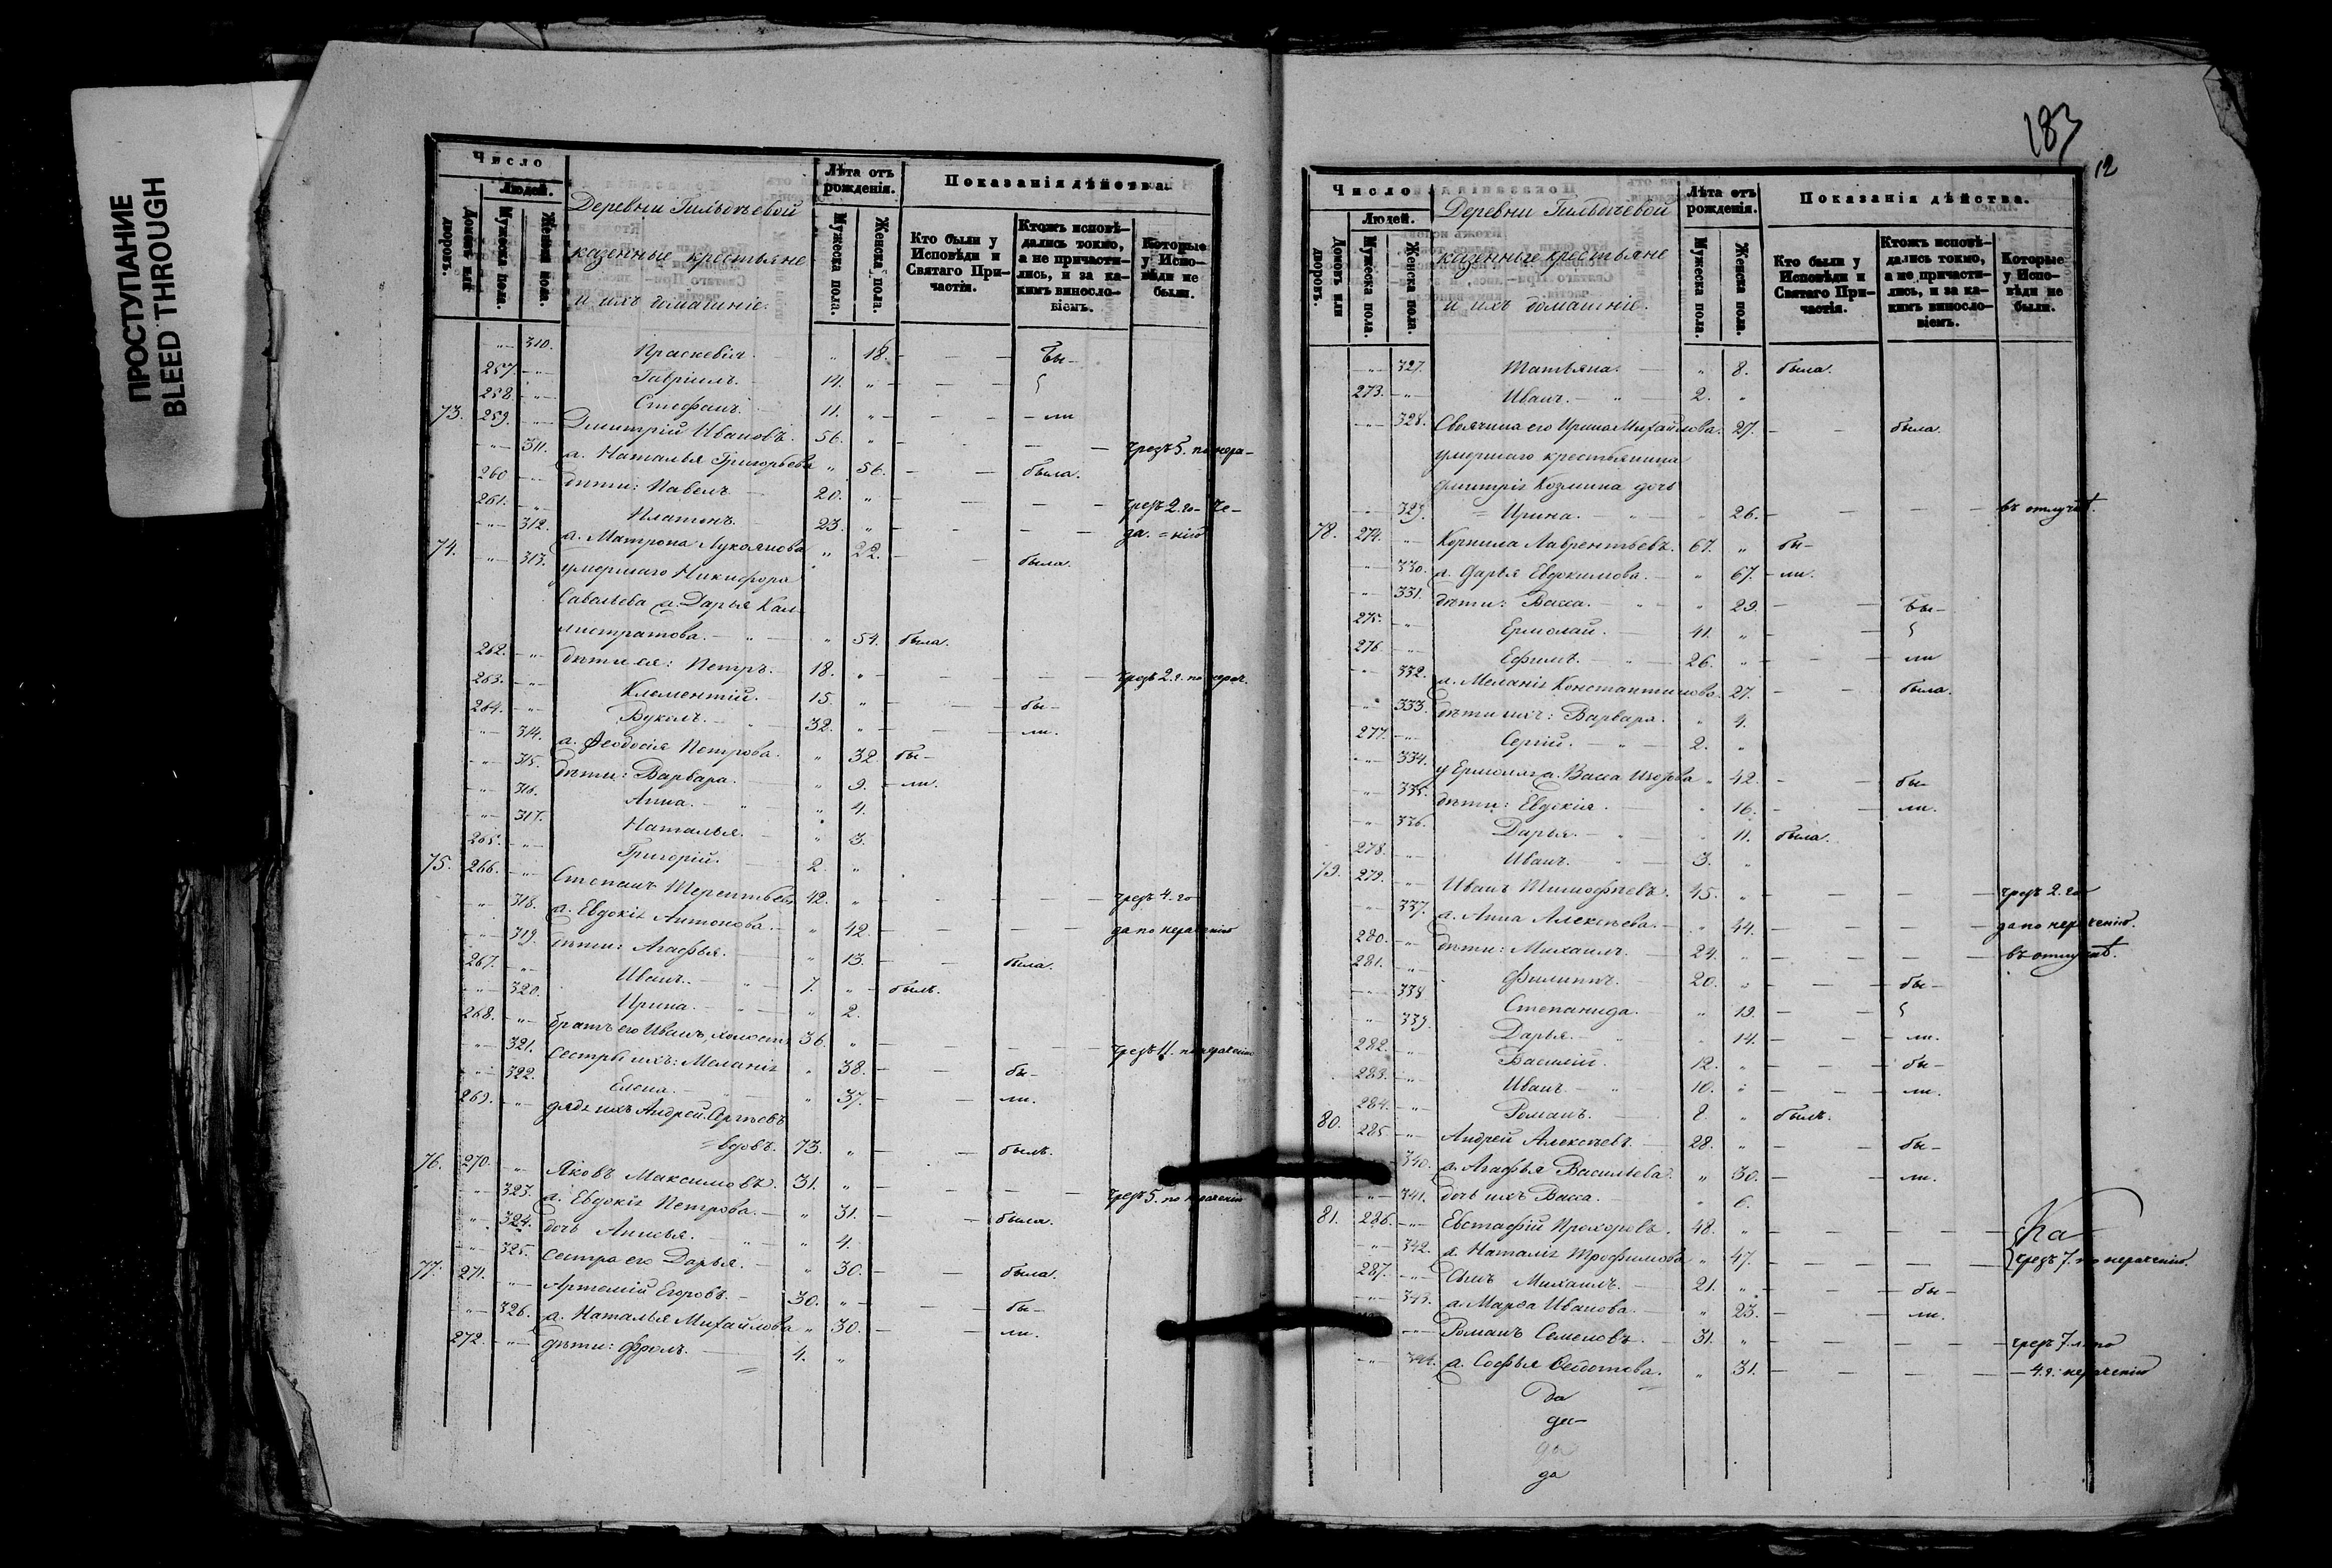 ПРОСТУПАНИЕ
BLEED THROUGH
Число
Людей.
Домовъ или дворовъ.
Мужеска пола.
Женска пола.
Деревни
казенные крестьяне
и ихъ домашніе.
Лѣта отъ рожденія.
Мужеска пола.
Женска пола.
Показанія дѣйства.
Кто были у Исповѣди и Святаго Причастія.
Ктожъ исповѣдались токмо, а не причастились, и за какимъ винословіемъ.
Которые у Исповѣди не были.
310. Праскевія. 18. бы-
257. Гавріилъ. 14.
258. Стефанъ. 11. - ли
73. 259. Димитрій Ивановъ. 56. чрезъ 5. по нера-
311. ж. Наталья Григорьева 56. была.
260 дѣти: Павелъ 20. чрезъ 2. го- че-
261. Платонъ. 23. да. = нію
312. ж. Матрона Лукоянова 22. была.
74. 313. умершаго Никифора
Савельева ж. Дарья Кал-
листратова. 54. была.
262. дѣти ея: Петръ. 18. чрезъ 2. г. по нерач.
263. Клементій. 15. бы-
264. Вуколъ. 32. ли.
314. ж. Феодосія Петрова. 32. бы-
315. дѣти: Варвара. 9. - ли.
316. Анна. 4.
317. Наталья. 3.
265. Григорій. 2.
75. 266. Степанъ Терентьевъ 42. чрезъ 4. го
318. ж. Евдокія Антонова. 42. да по нераченію
319. дѣти: Агафья. 13. была.
267. Иванъ. 7. былъ.
320. Ирина. 2.
268. братъ его Иванъ, холостъ 36. чрезъ 11. по нераченію
321. сестры ихъ: Меланія 38. бы-
322. Елена. 37. ли.
269. дядя ихъ Андрей Сергѣевъ
= вдовъ. 73. былъ.
76. 270. Яковъ Максимовъ. 31. чрезъ 5. по нераченію
323. ж. Евдокія Петрова. 31. была.
324. дочь Анисья. 4.
325. сестра его Дарья. 30. была.
77. 271. Артемій Егоровъ. 30. бы-
326. ж. Наталья Михайлова 30. ли.
272. дѣти: Фролъ. 4.
183
12
Число
Людей.
Домовъ или дворовъ.
Мужеска пола.
Женска пола.
Деревни
казенные крестьяне
и ихъ домашніе.
Лѣта отъ рожденія.
Мужеска пола.
Женска пола.
Показанія дѣйства.
Кто были у Исповѣди и Святаго Причастія.
Ктожъ исповѣдались токмо, а не причастились, и за какимъ винословіемъ.
Которые у Исповѣди не были.
327. Татьяна. 8. была.
273. Иванъ. 2.
328. Своячина его Ирина Михайлова. 27. была.
умершаго крестьянина
Дмитрія Козмина дочь
329. = Ирина. 26. въ отлучкѣ.
78. 274. Корнила Лаврентьевъ. 67. бы-
330. ж. Дарья Евдокимова. 67. - ли.
331. дѣти: Васса. 29. бы-
275. Ермолай. 41.
276. Ефимъ. 26. ли
332. ж. Меланія Константинова 27. была.
333. дѣти ихъ: Варвара. 4.
277. Сергій. 2.
334. у Ермолая ж. Васса 42. бы-
335. дѣти: Евдокія. 16. ли.
336. Дарья. 11. была.
278. Иванъ. 3.
79. 279. Иванъ Тимофѣевъ. 45. чрезъ 2. го
337. ж. Анна Алексѣева. 44. да по нераченію.
280. дѣти: Михаилъ. 24. въ отлучкѣ.
281. Филиппъ. 20. бы-
338 Степанида. 19.
339. Дарья. 14. ли.
282. Василій. 12. бы-
283. Иванъ. 10. ли.
284. Романъ. 8. былъ.
80. 285 Андрей Алексѣевъ. 28. бы-
340. ж. Агафья Васильева. 30. ли.
341. дочь ихъ Васса. 6.
81. 286. Евстафій Прохоровъ. 48.
342. ж. Наталія Трофимова 47. чрезъ 7. по нераченію.
287. сынъ Михаилъ. 21. бы-
343. ж. Марѳа Иванова. 23. ли.
Романъ Семеновъ. 31. чрезъ 7.
344. ж. Софья Федотова. 31. 4. г. нераченію
да
да
да